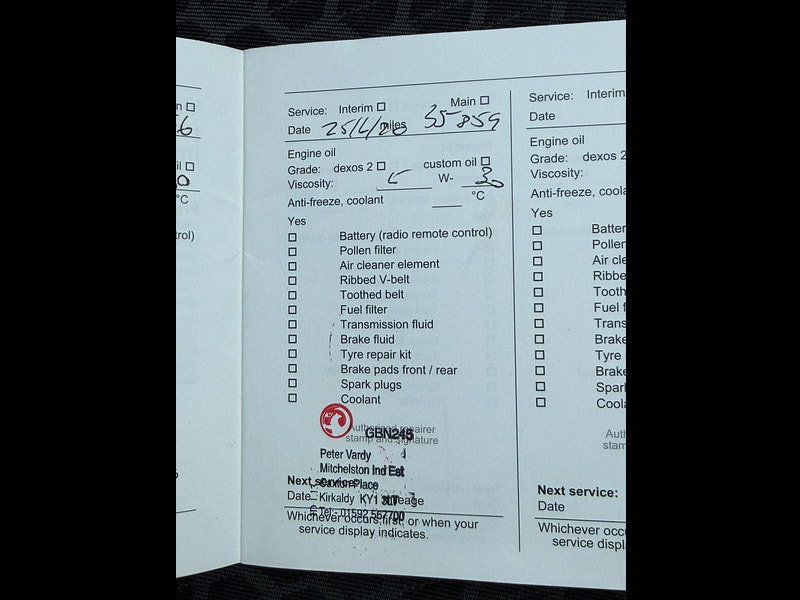 n
6
il
0
°C
trol)
Service: Interim Main
Date 25/ /20 miles 35859
Engine oil
Grade: dexos 2 custom oil
Viscosity: W- 30
Anti-freeze, coolant °C
Yes
Battery (radio remote control)
Pollen filter
Air cleaner element
Ribbed V-belt
Toothed belt
Fuel filter
Transmission fluid
Brake fluid
Tyre repair kit
Brake pads front / rear
Spark plugs
Coolant
Authorised repairer
stamp and signature
GBN245
Peter Vardy
Mitchelston Ind Est
Next service:
Carxton Place
Date Kirkaldy KY1 3LT
Tel:- 01592 567700
Whichever occurs first, or when your
service display indicates.
Service: Interim
Date
Engine oil
Grade: dexos 2
Viscosity:
Anti-freeze, coola
Yes
Batter
Pollen
Air cle
Ribbe
Tooth
Fuel f
Trans
Brake
Tyre
Brake
Spark
Coola
Auth
stam
Next service:
Date
Whichever occu
service displ